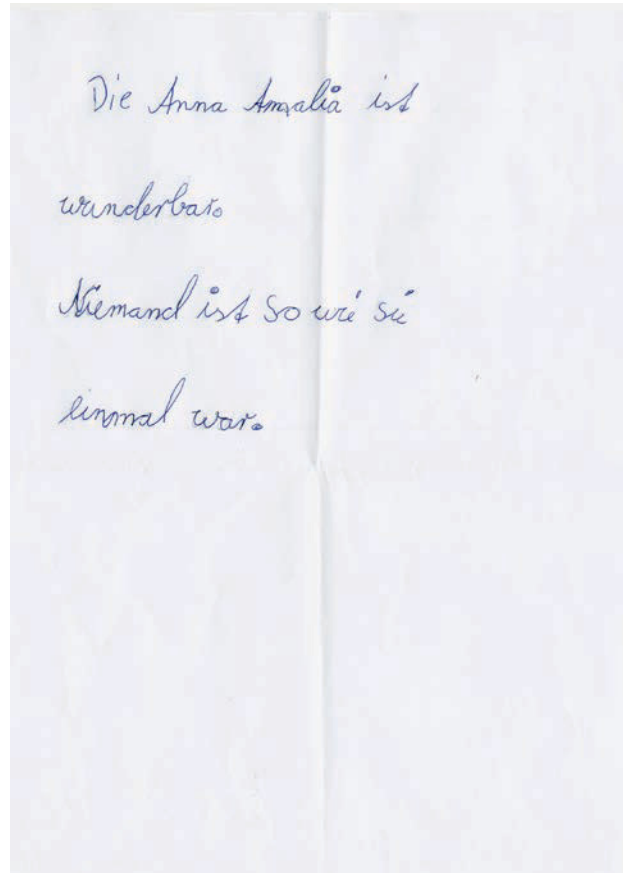 Die Anna Amalia ist
wunderbar.
Niemand ist so wie sie
einmal war.